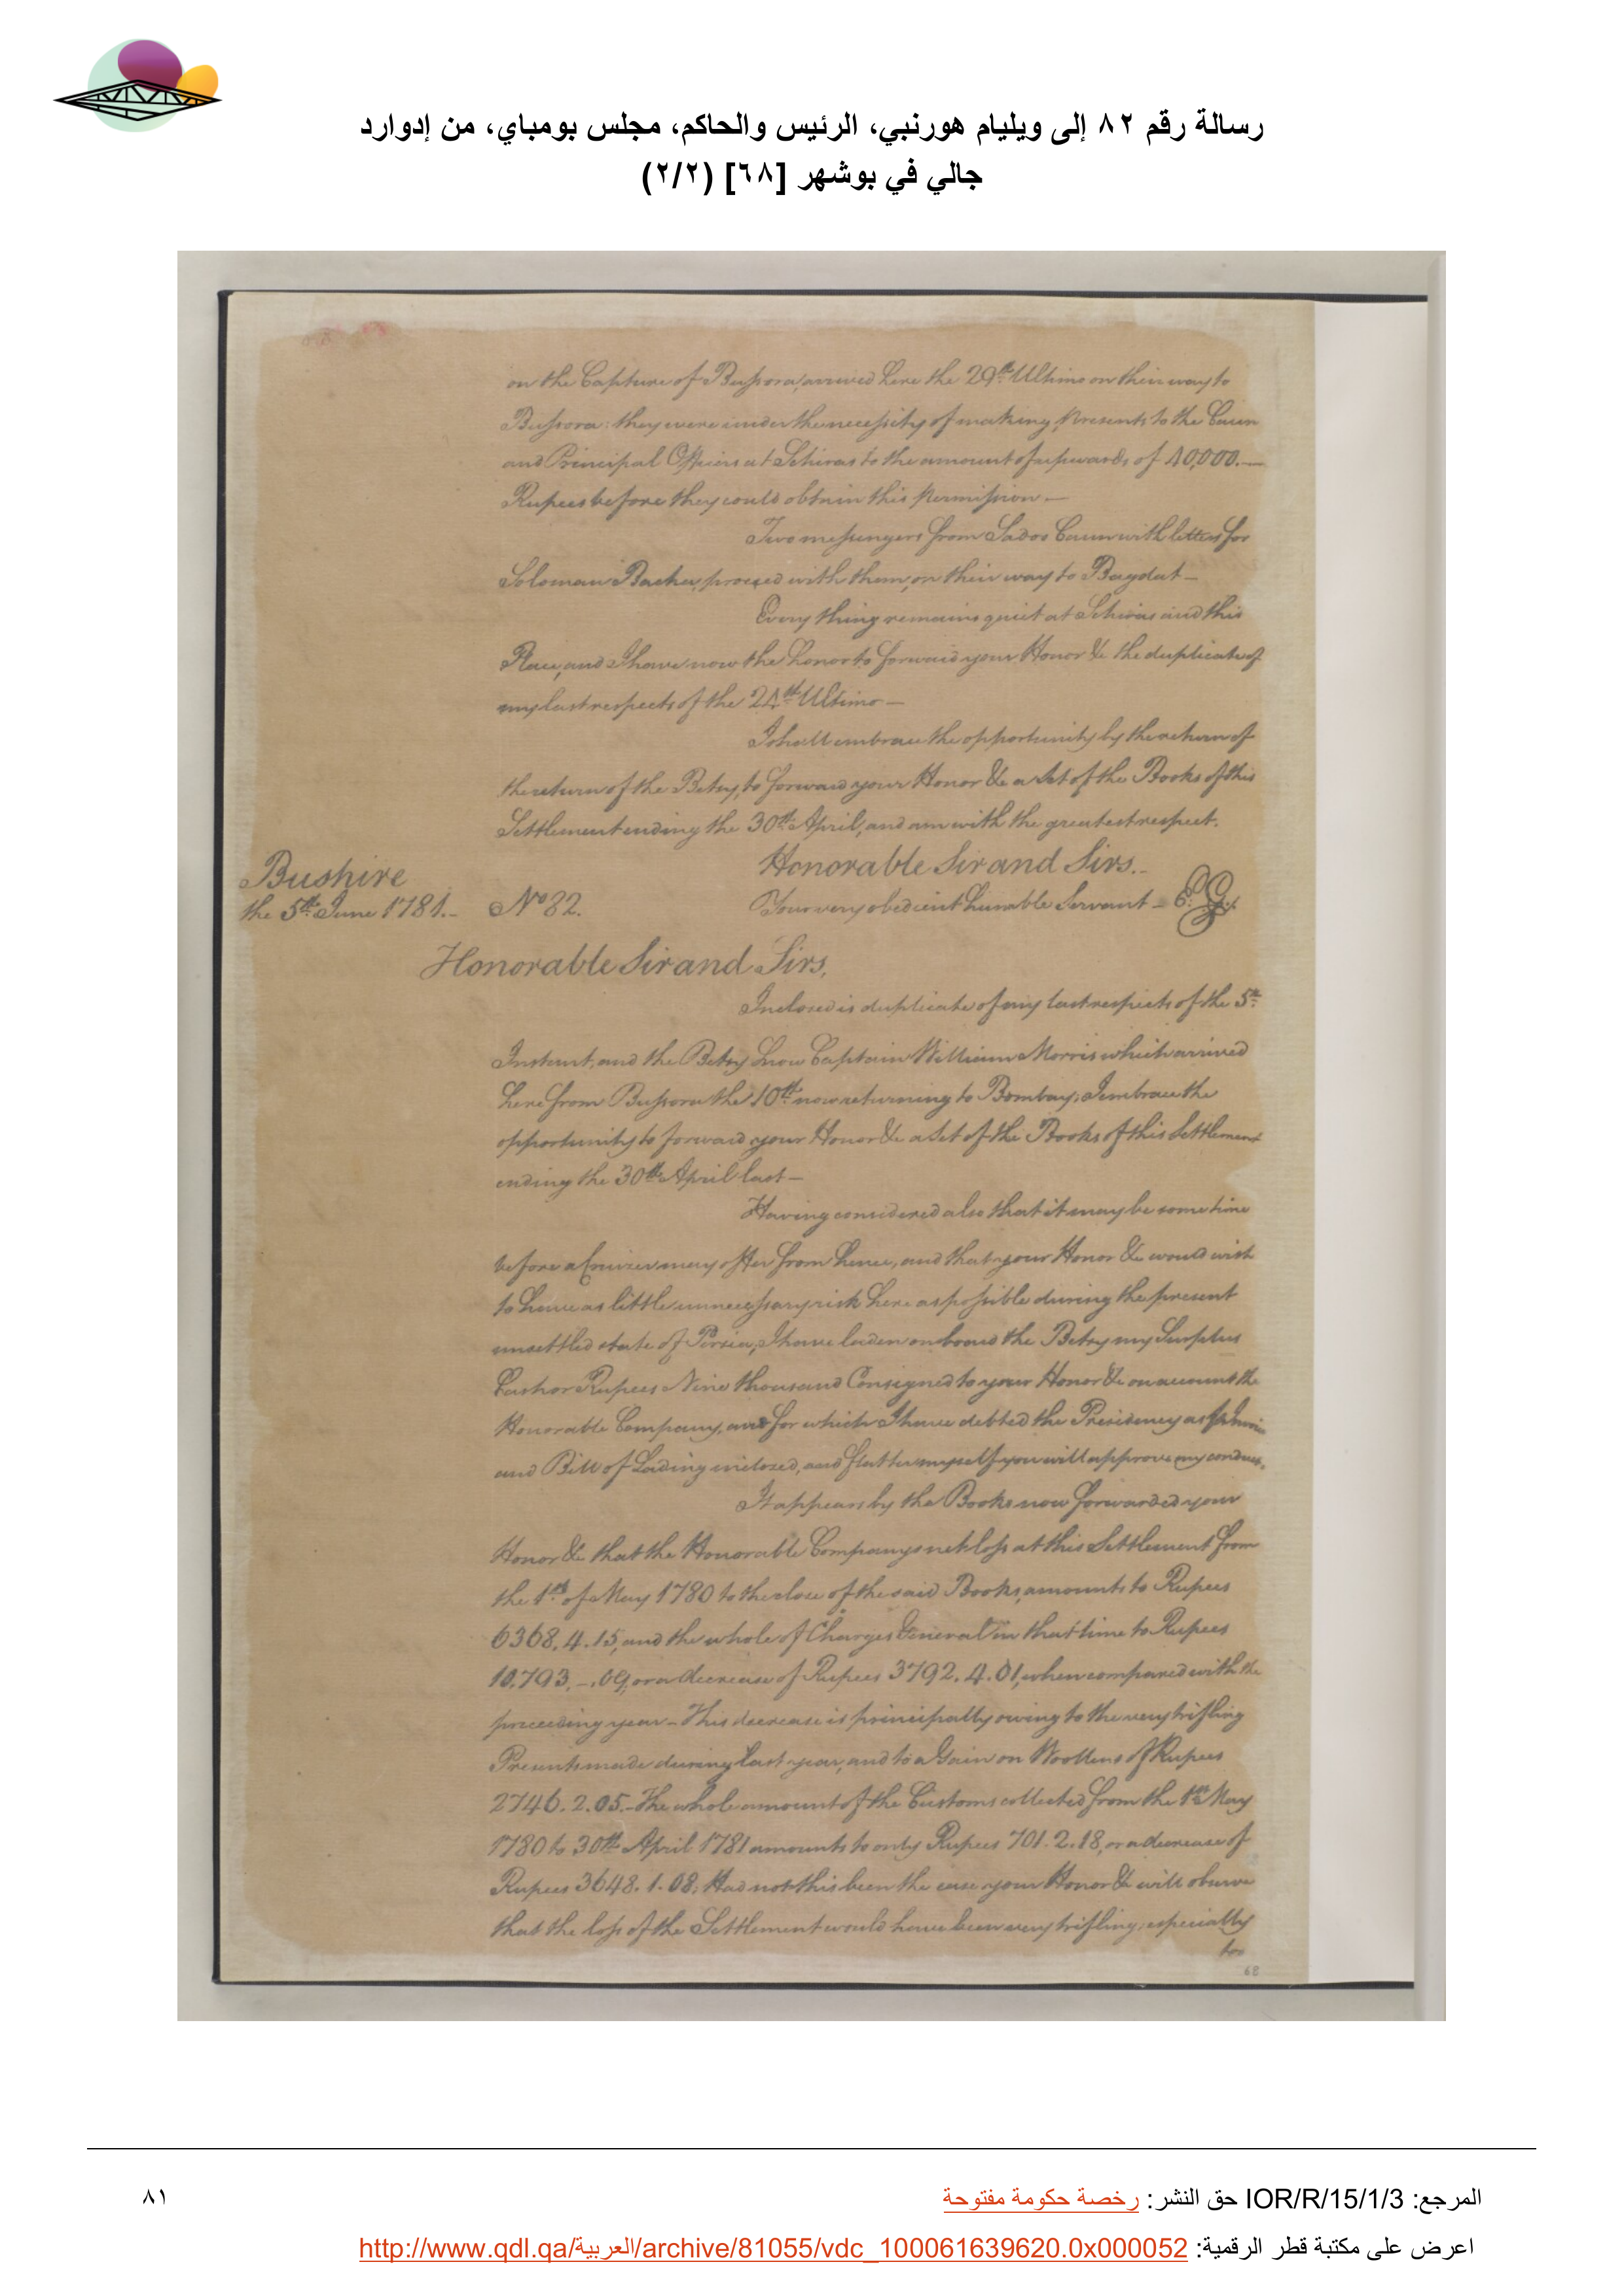 رسالة رقم ٨٢ إلى ويليام هورنبي، الرئيس والحاكم، مجلس بومباي، من إدوارد
جالي في بوشهر [٦٨] (٢/٢)
on the Capture of Bussora, arrived here the 29th. Ultimo on their way to
Bussora: they were under the necessity of making Presents to the Caun
and Principal Officers at Schiras to the amount of upwards of 40,000.—
Rupees before they could obtain this Permission.—
Two messengers from Sadoo Caun with letters for
Soloman Bacha, proceed with them, on their way to Bagdat—
Every thing remains quiet at Schiras and this
Place, and I have now the honor to forward your Honor &c the duplicate of
my last respects of the 24th Ultimo—
I shall embrace the opportunity by the return of
the return of the Betsy, to forward your Honor &c a Set of the Books of this
Settlement ending the 30th. April, and am with the greatest respect.
Honorable Sir and Sirs.-
Bushire
the 5th. June 1781.- No 82. Your very obedient humble Servant - E: G:
Honorable Sir and Sirs,
Inclosed is duplicate of my last respects of the 5th:
Instant, and the Betsy Snow Captain William Morris which arrived
here from Bussora the 10th. now returning to Bombay; I embrace the
opportunity to forward your Honor &c a Set of the Books of this Settlement
ending the 30th April last—
Having considered also that it may be some time
before a Cruizer may offer from hence, and that your Honor &c would wish
to have as little unnecessary risk here as possible during the present
unsettled state of Persia, I have laden onboard the Betsy my Surplus
Cash or Rupees Nine thousand Consigned to your Honor &c on account the
Honorable Company, and for which I have debted the Presidency as
and Bill of Lading inclosed, and flatter myself you will approve my conduct.
It appears by the Books now forwarded your
Honor &c that the Honorable Companys net loss at this Settlement from
the 1st. of May 1780 to the close of the said Books, amounts to Rupees
6368. 4. 15, and the whole of Charges General in that time to Rupees
10,793. –. 09, or a decrease of Rupees 3792. 4. 01, when compared with the
preceeding year— This decrease is principally owing to the very trifling
Presents made during last year, and to a Gain on Woollens of Rupees
2746. 2. 05.— The whole amount of the Customs collected from the 1st. May
1780 to 30th. April 1781 amounts to only Rupees 701. 2. 18, or a decrease of
Rupees 3648. 1. 08; Had not this been the case your Honor &c will observe
that the loss of the Settlement would have been very trifling; especially
too
68
المرجع: IOR/R/15/1/3 حق النشر: رخصة حكومة مفتوحة
٨١
اعرض على مكتبة قطر الرقمية: http://www.qdl.qa/العربية/archive/81055/vdc_100061639620.0x000052